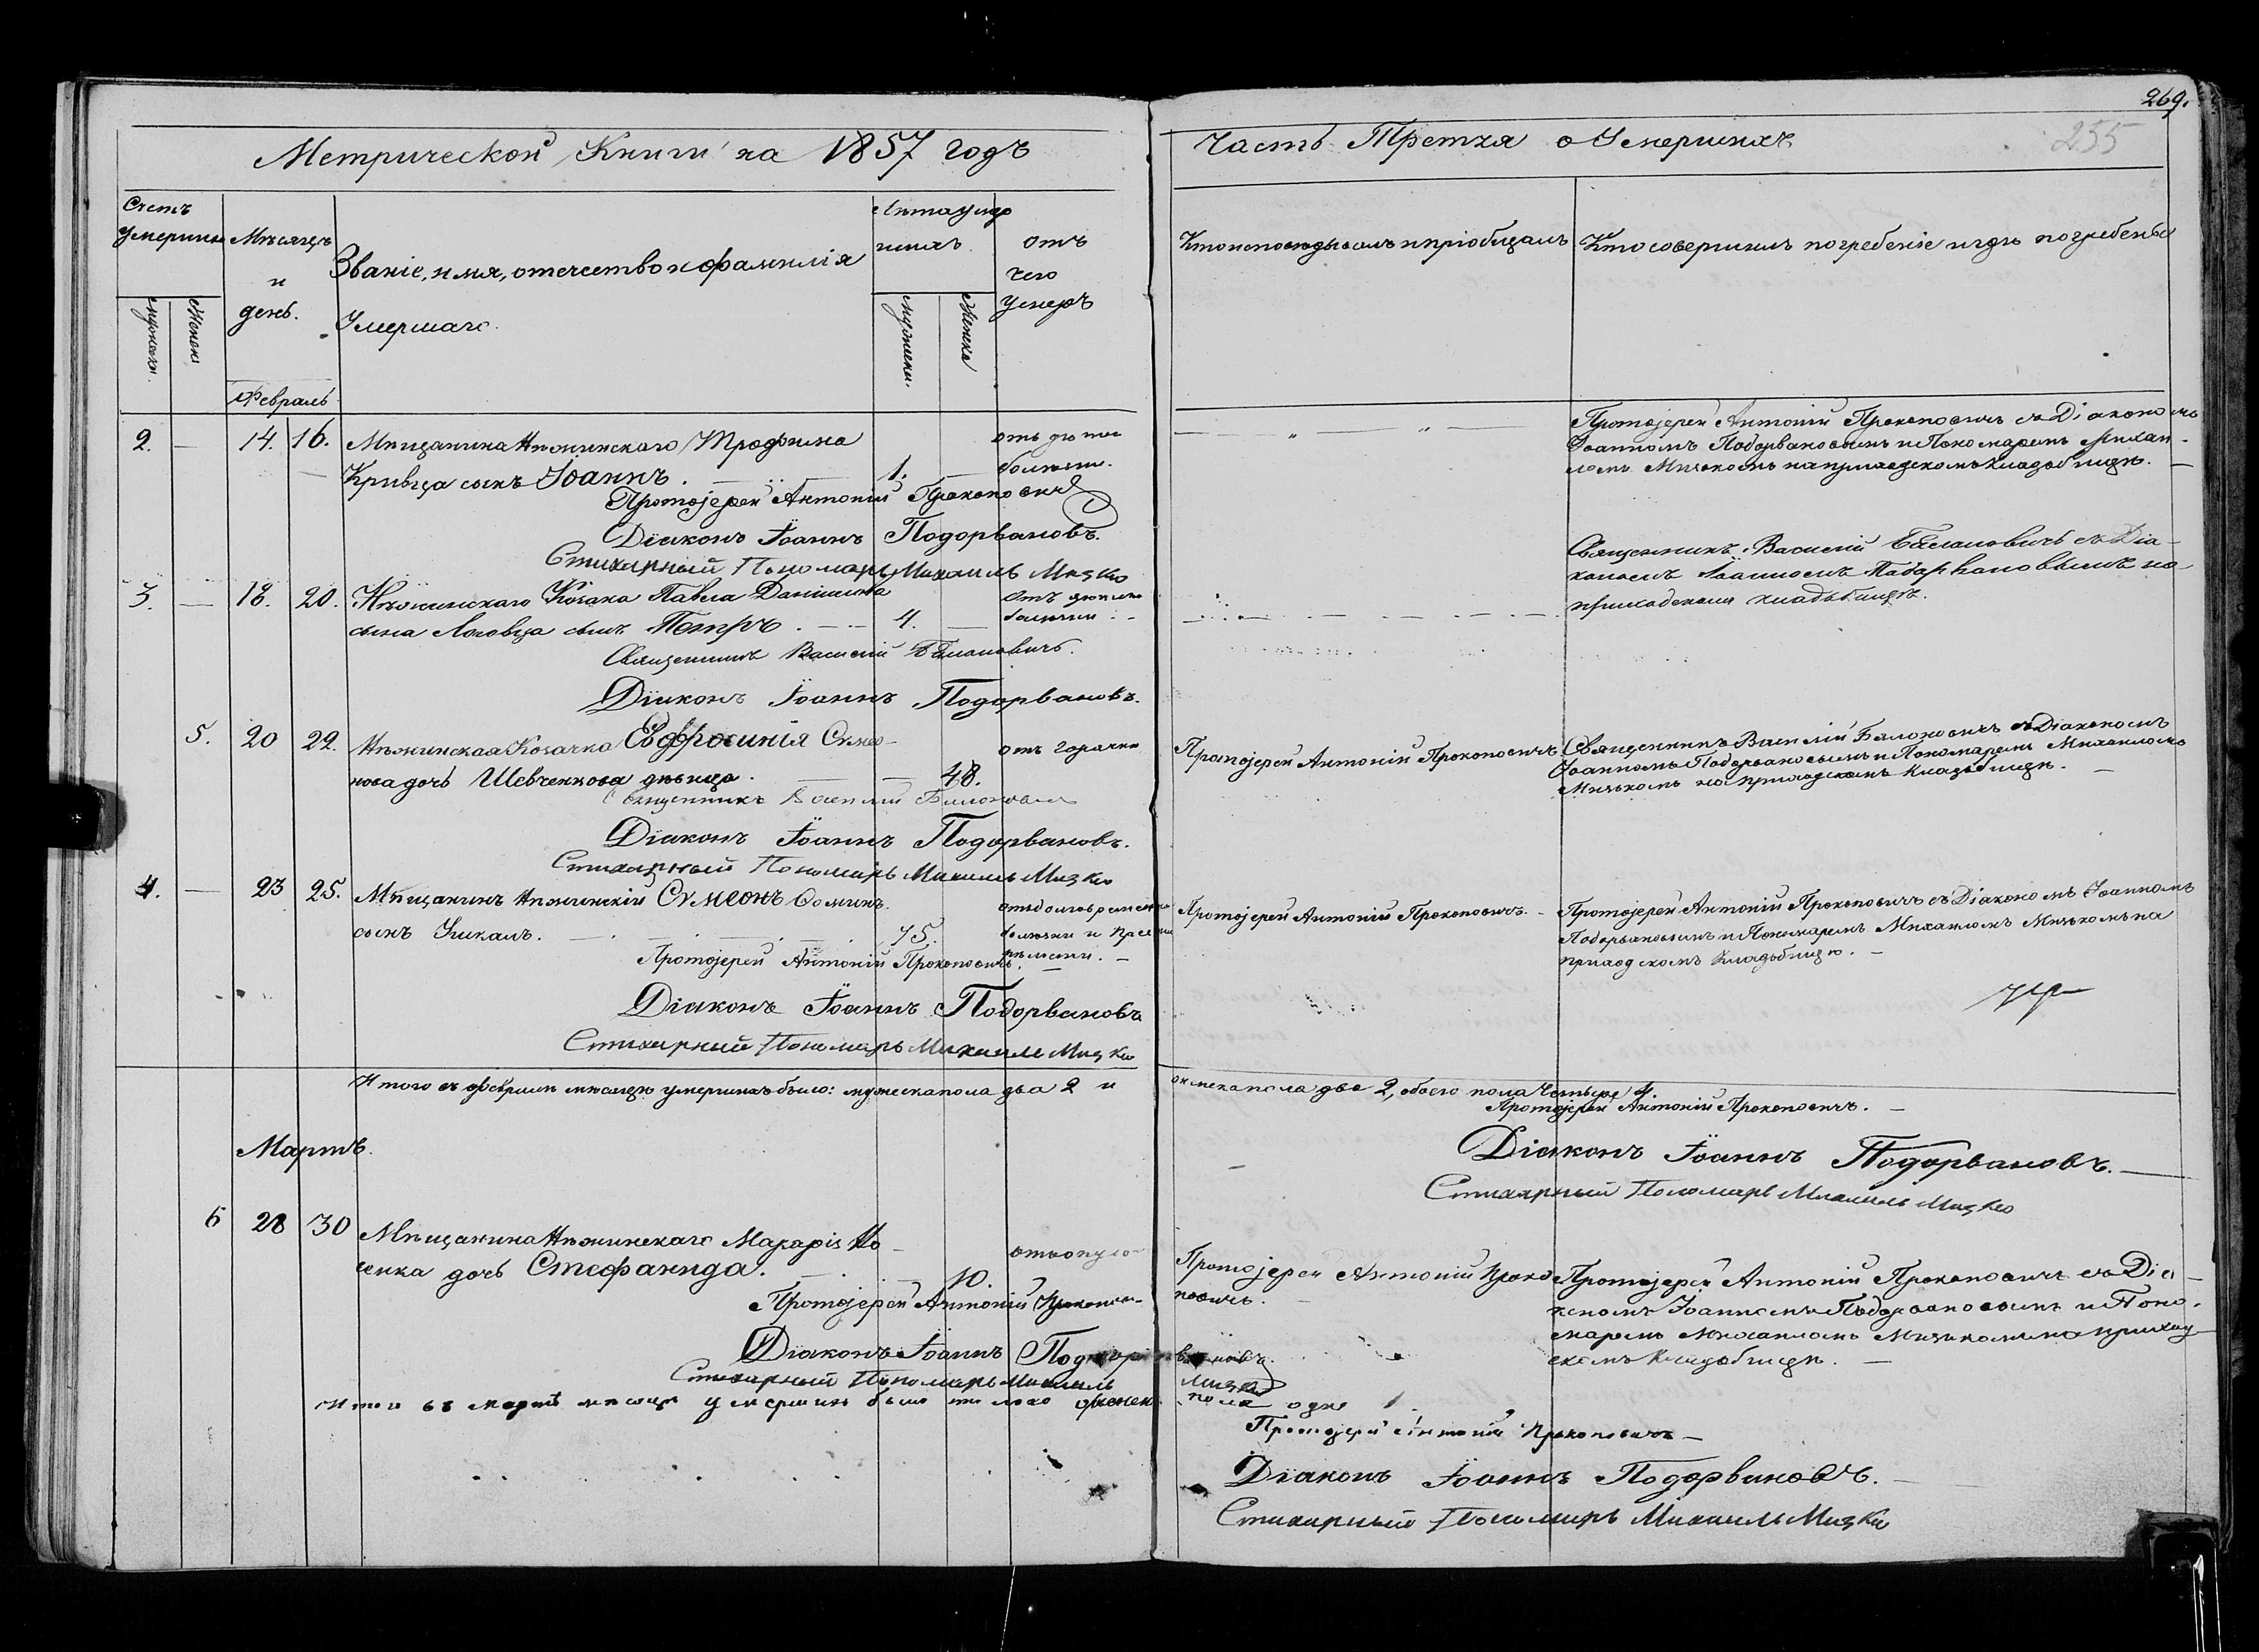 269.
255
Метрической Книги на 1857 годъ
Часть Третия о Умершихъ
Счетъ
умершихъ
Мѣсяцъ
и
день.
Званіе, имя, отечество и фамилія
Умершаго.
Лѣта умер
шихъ
отъ
чего
умеръ
Кто исповѣдывалъ и пріобщалъ
Кто совершилъ погребеніе и гдѣ погребены
Февраль
2. — 14. 16. Мѣщанина Нѣжинскаго Трофима
Кривца сынъ Іоаннъ. 1.
болѣзни.
Протоіерей Антоній Прокоповичъ
Діаконъ Іоаннъ Подорвановъ.
Стихарный Пономарь Михаилъ Мизко
Протоіерей Антоній Прокоповичъ съ Діакономъ
Іоанномъ Подорвановымъ и Пономаремъ Михаи-
ломъ Мизкомъ на приходскомъ кладбищѣ. —
3. — 18. 20. Нѣжинскаго Козака Павла Даніилова
сына сынъ Петръ. — 4. —
Священникъ Василій
Діаконъ Іоаннъ Подорвановъ.
Священникъ Василій съ Діа-
кономъ Іоанномъ Подорвановымъ на
приходскомъ кладбищѣ.
5. 20 22. Нѣжинская Козачка Евфросинія Сѵмео-
нова дочь Шевченкова дѣвица. — 48.
отъ горячки
Священникъ Василій
Діаконъ Іоаннъ Подорвановъ.
Стихарный Пономарь Михаилъ Мизко
Протоіерей Антоній Прокоповичъ
Священникъ Василій съ Діакономъ
Іоанномъ Подорвановымъ и Пономаремъ Михаиломъ
Мизкомъ на приходскомъ кладбищѣ. —
4. — 23 25. Мѣщанинъ Нѣжинскій Сѵмеонъ Ѳоминъ
сынъ 75.
Протоіерей Антоній Прокоповичъ.
Діаконъ Іоаннъ Подорвановъ
Стихарный Пономарь Михаилъ Мизко
Протоіерей Антоній Прокоповичъ. —
Протоіерей Антоній Прокоповичъ съ Діакономъ Іоанномъ
Подорвановымъ и Пономаремъ Михаиломъ Мизкомъ на
приходскомъ кладбищѣ. —
Итого въ февралѣ мѣсяцѣ умершихъ было: мужеска пола два 2 и
женска пола две 2, обоего пола четыре 4.
Протоіерей Антоній Прокоповичъ. —
Діаконъ Іоаннъ Подорвановъ. —
Стихарный Пономарь Михаилъ Мизко
Мартъ.
6 28 30 Мѣщанина Нѣжинскаго Макарія
дочь Стефанида. — 10.
Протоіерей Антоній Прокопович
Діаконъ Іоаннъ Подорвановъ.
Стихарный Пономарь Михаилъ Мизко
Протоіерей Антоній Проко
повичъ.
Протоіерей Антоній Прокоповичъ съ Діа-
кономъ Іоанномъ Подорвановымъ и Поно-
маремъ Михаиломъ Мизкомъ на приход
скомъ кладбищѣ. —
Итого въ мартѣ мѣсяцѣ умершихъ было женск
пола одна 1.
Протоіерей Антоній Прокоповичъ —
Діаконъ Іоаннъ Подорвановъ. —
Стихарный Пономарь Михаилъ Мизко